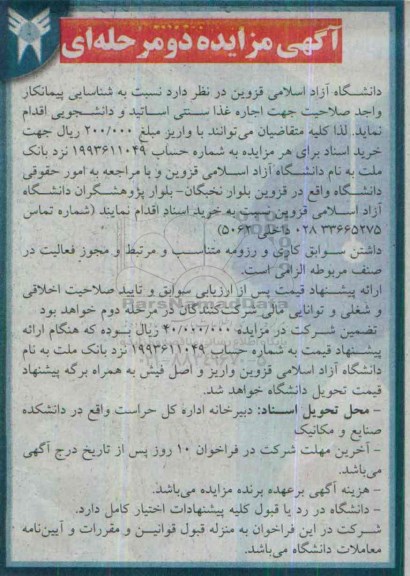 آگهی مزایده دو مرحله‌ای
دانشگاه آزاد اسلامی قزوین در نظر دارد نسبت به شناسایی پیمانکار
واجد صلاحیت جهت اجاره غذا سنتی اساتید و دانشجویی اقدام
نماید. لذا کلیه متقاضیان می‌توانند با واریز مبلغ ۲۰۰/۰۰۰ ریال جهت
خرید اسناد برای هر مزایده به شماره حساب ۱۹۹۳۶۱۱۰۴۹ نزد بانک
ملت به نام دانشگاه آزاد اسلامی قزوین و با مراجعه به امور حقوقی
دانشگاه واقع در قزوین بلوار نخبگان- بلوار پژوهشگران دانشگاه
آزاد اسلامی قزوین نسبت به خرید اسناد اقدام نمایند (شماره تماس
۳۳۶۶۵۲۷۵ ۰۲۸ داخلی ۵۰۶۲)
داشتن سوابق کاری و رزومه متناسب و مرتبط و مجوز فعالیت در
صنف مربوطه الزامی است.
ارائه پیشنهاد قیمت پس از ارزیابی سوابق و تایید صلاحیت اخلاقی
و شغلی و توانایی مالی شرکت‌کنندگان در مرحله دوم خواهد بود
تضمین شرکت در مزایده ۴۰/۰۰۰/۰۰۰ ریال بوده که هنگام ارائه
پیشنهاد قیمت به شماره حساب ۱۹۹۳۶۱۱۰۴۹ نزد بانک ملت به نام
دانشگاه آزاد اسلامی قزوین واریز و اصل فیش به همراه برگه پیشنهاد
قیمت تحویل دانشگاه خواهد شد.
- محل تحویل اسناد: دبیرخانه اداره کل حراست واقع در دانشکده
صنایع و مکانیک
- آخرین مهلت شرکت در فراخوان ۱۰ روز پس از تاریخ درج آگهی
می‌باشد.
- هزینه آگهی برعهده برنده مزایده می‌باشد.
- دانشگاه در رد یا قبول کلیه پیشنهادات اختیار کامل دارد.
شرکت در این فراخوان به منزله قبول قوانین و مقررات و آیین‌نامه
معاملات دانشگاه می‌باشد.
ParsNamadData